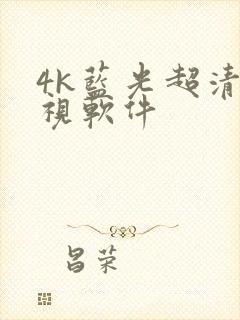 4K藍光超清
視軟件
昌荣